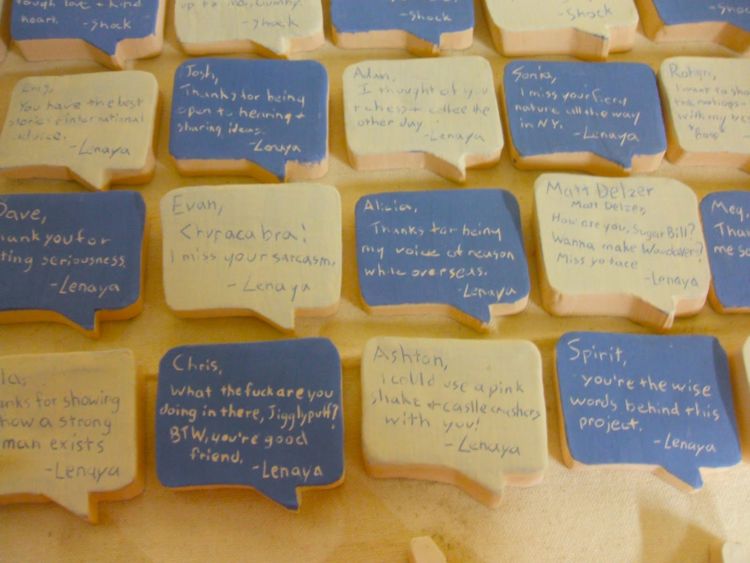 tough love + kind
heart.
-Shock
up to me,
-Shock
-Shock
-Shock
You have the best
stories + international
advice.
-Lenaya
Josh,
Thanks for being
open to hearing +
sharing ideas.
-Lenaya
Adam,
I thought of you
+ coffee the
other day
-Lenaya
Sonia,
I miss your fiery
nature all the way
in NY.
-Lenaya
Robyn,
I want to
with my
Dave,
thank you for
seriousness.
-Lenaya
Evan,
Chupacabra!
I miss your sarcasm.
-Lenaya
Alicia,
Thanks for being
my voice of reason
while overseas.
-Lenaya
Matt Delzer
Matt Delzer,
How are you, Sugar Bill?
Wanna make Wandater?
Miss yo face
-Lenaya
Meg
Than
me so
anks for showing
how a strong
man exists
-Lenaya
Chris,
What the fuck are you
doing in there, Jigglypuff?
BTW, you're good
friend.
-Lenaya
Ashton,
I could use a pink
shake + castle crushers
with you!
-Lenaya
Spirit,
you're the wise
words behind this
project.
-Lenaya